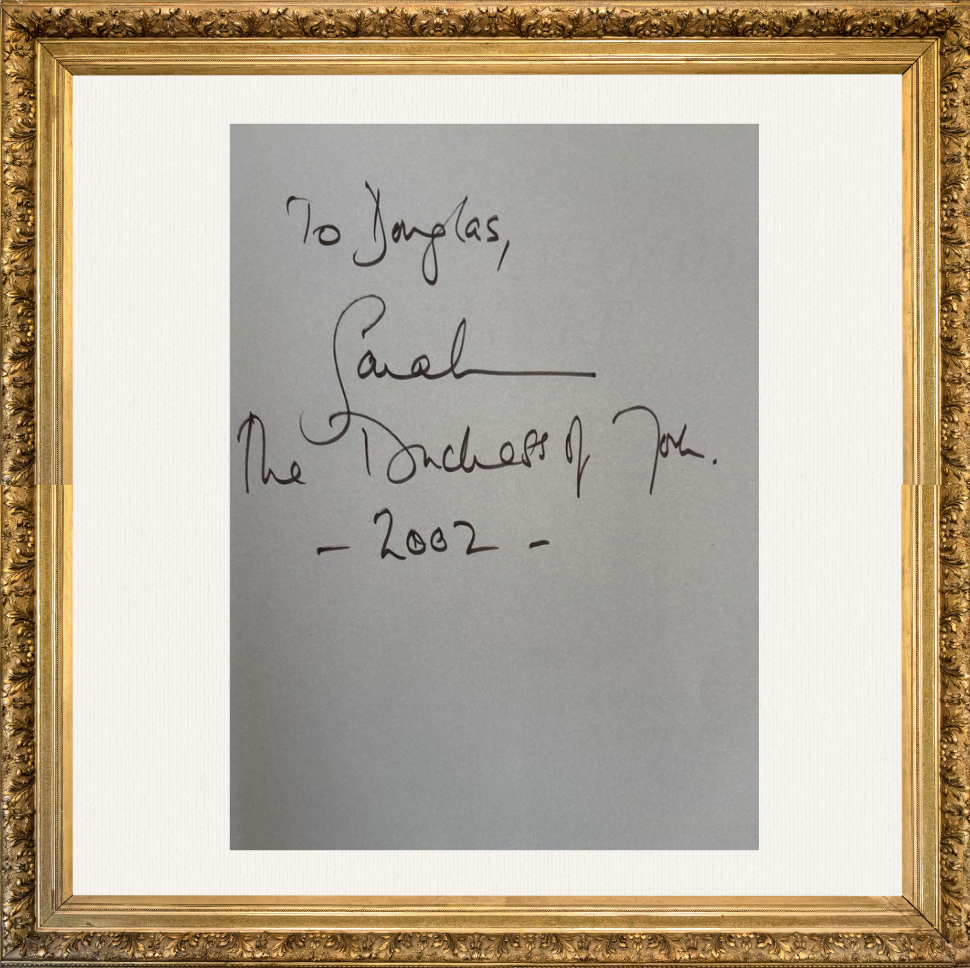 To Douglas,
Sarah
The Duchess of York.
- 2002 -